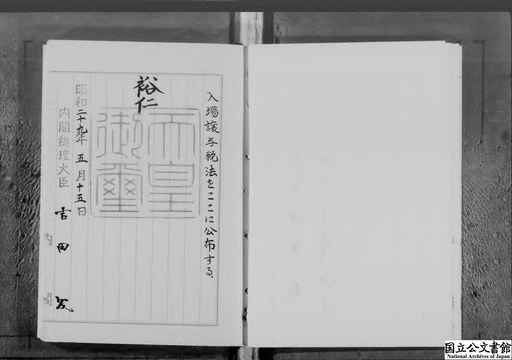 入場譲与税法をここに公布する。
裕仁
天皇御璽
昭和二十九年五月十五日
内閣総理大臣 吉田茂
国立公文書館
National Archives of Japan